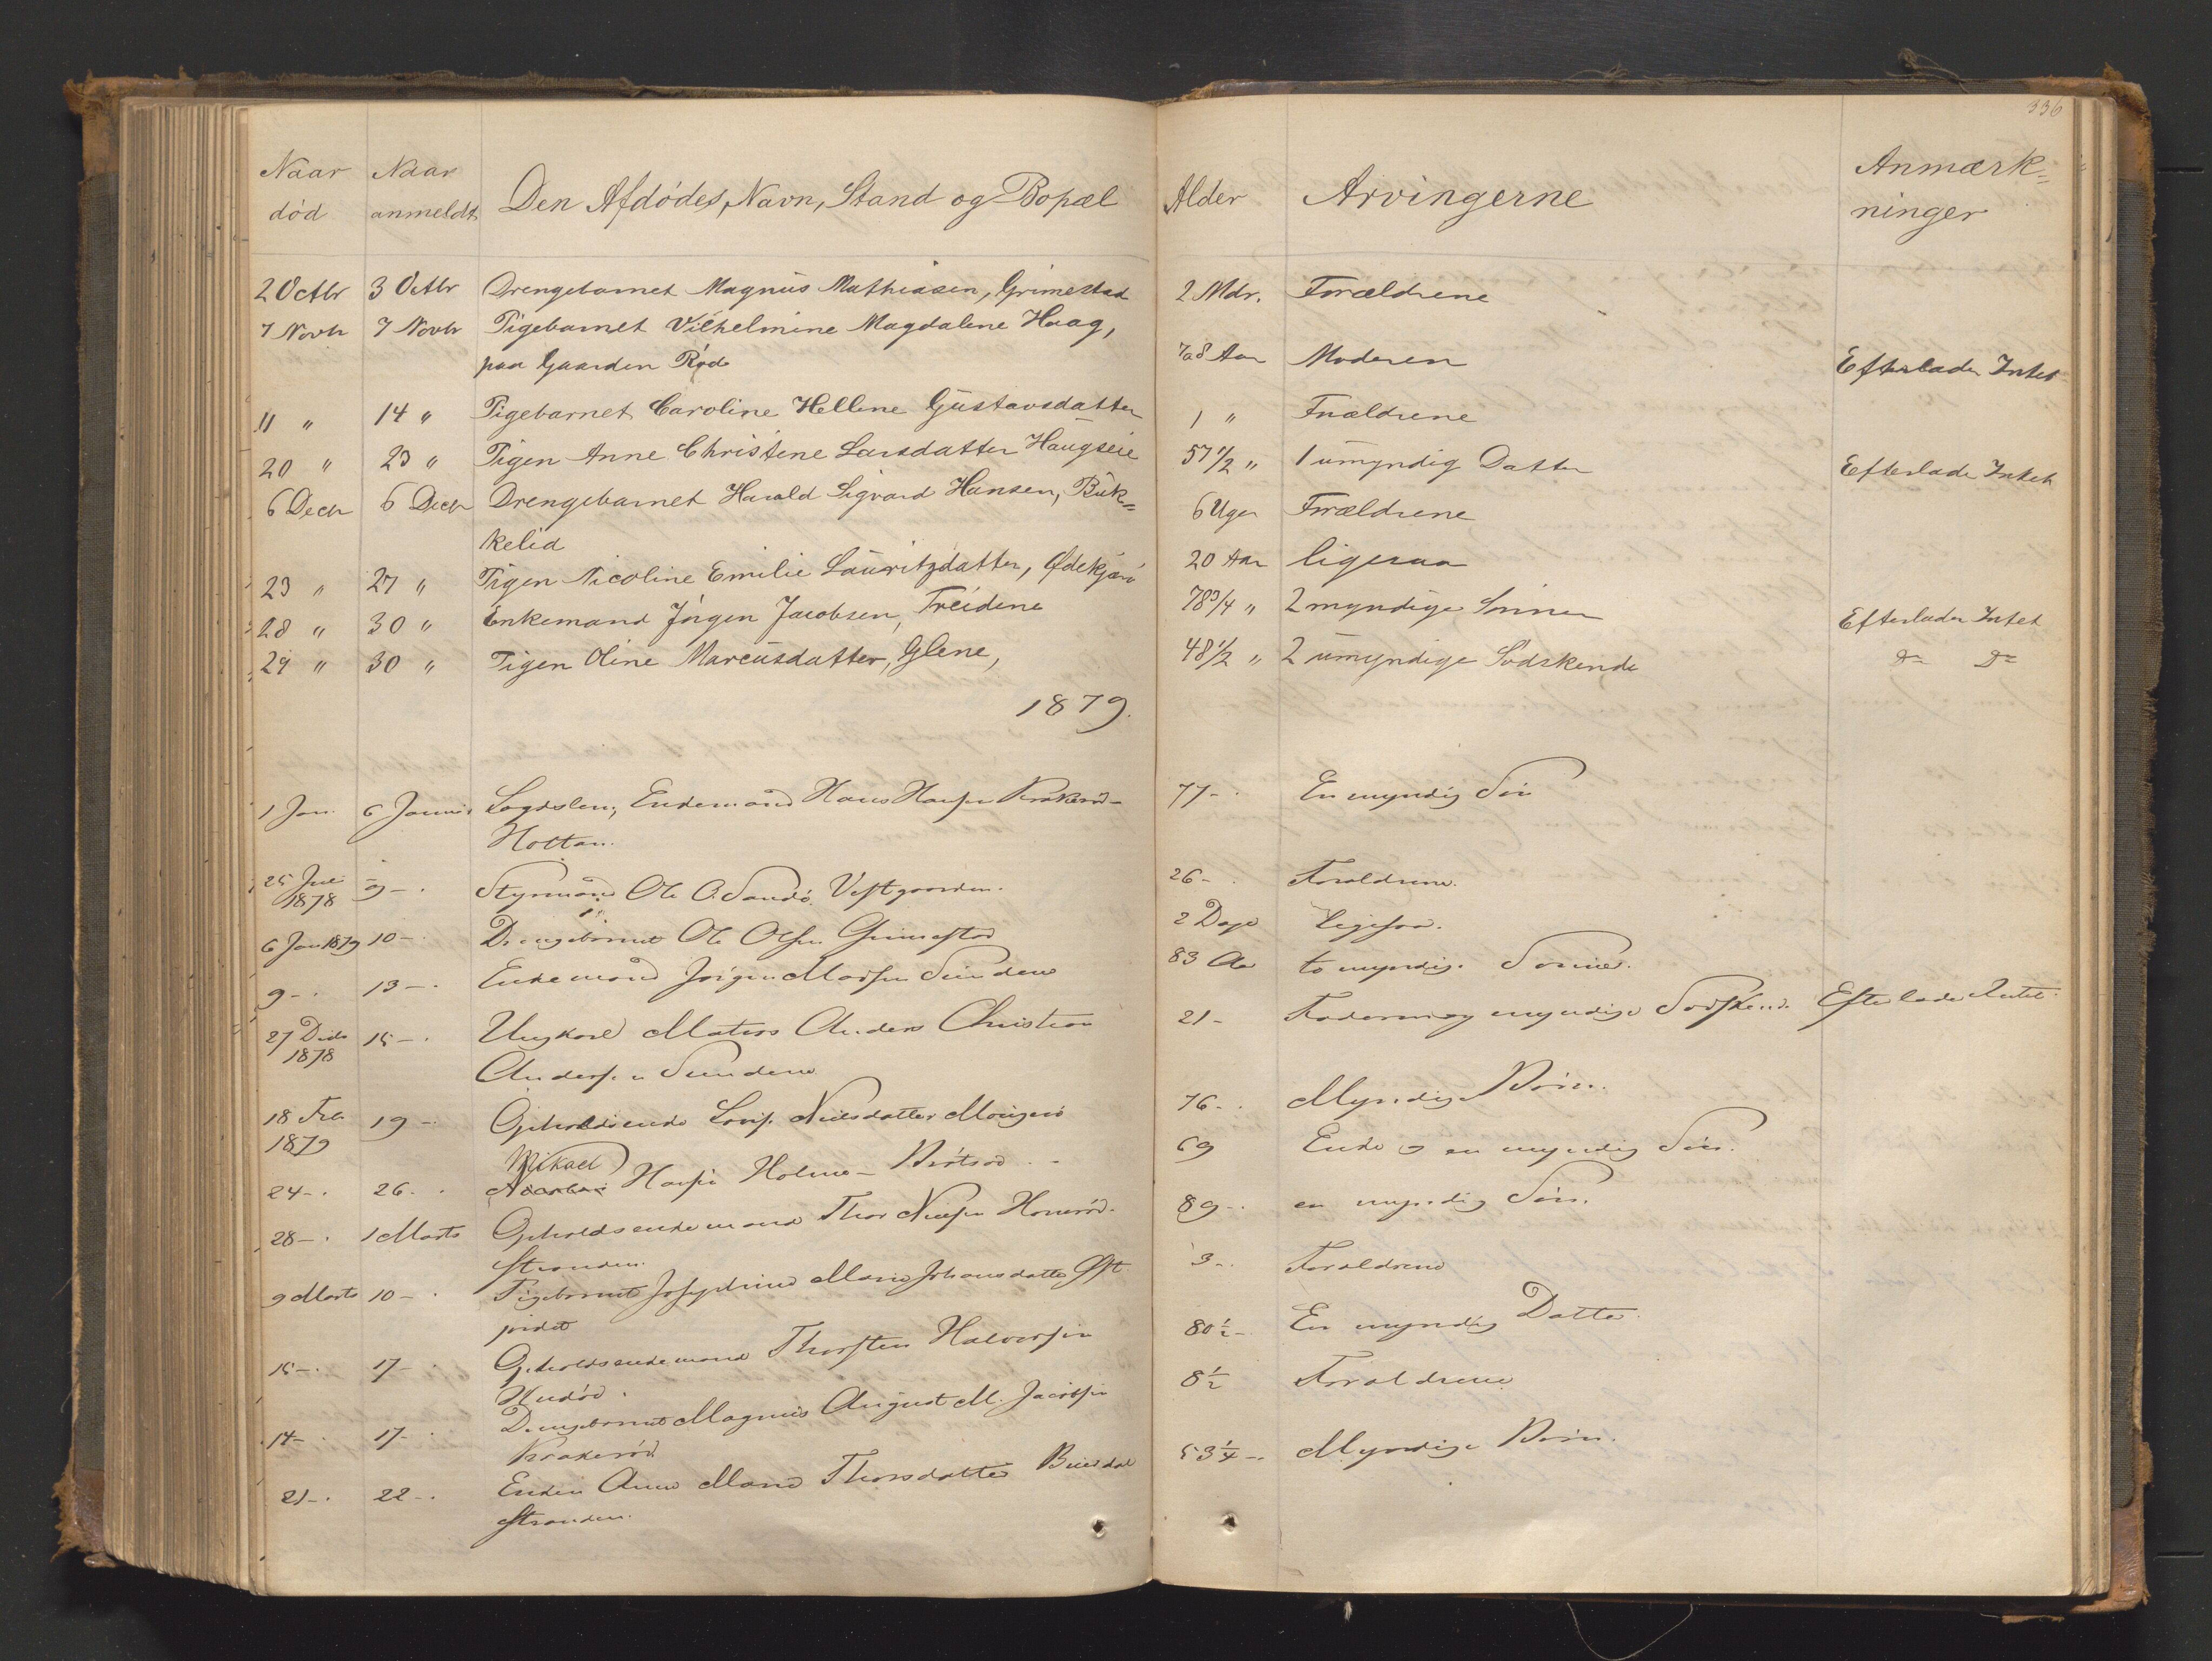 336
Naar død
Naar anmeldt
Den Afdødes, Navn, Stand og Bopæl
Alder
Arvingerne
Anmærk=
ninger
2 Octbr 3 Octbr Drengebarnet Magnus Mathiasen, Grimestad 2 Mdr. Forældrene
7 Novbr 7 Novbr Pigebarnet Vilhelmine Magdalene Haag,
paa Gaarden Rød 7a8 Aar Moderen Efterlader Intet
11 " 14 " Pigebarnet Caroline Hellene Gustavsdatter 1 " Forældrene
20 " 23 " Pigen Anne Christine Larsdatter Haugseie 57 1/2 " 1 umyndig Datter Efterlader Intet
6 Decbr 6 Decbr Drengebarnet Harald Sigvard Hansen, Bük=
kelid 6 Uger Forældrene
23 " 27 " Pigen Nicoline Emilie Lauritzdatter, Ødekjær 20 Aar ligesaa
28 " 30 " Enkemand Jörgen Jacobsen, Treidene 78 3/4 " 2 myndige Sönner Efterlader Intet
29 " 30 " Pigen Oline Marcusdatter, Glene, 48 1/2 " 2 umyndige Sødskende Do Do
1879.
1 Jan. 6 Januar Enkemand Hans 77 - En myndig Sön
Holtan.
25 1878 9 - Styrmand Ole O. Sandö. Vestgaarden. 26 - Forældrene.
6 Jan 1879 10 - Drengebarnet Ole Olsen Grimestad 2 Dage ligesaa.
9 - 13 - Enkemand Jörgen 83 Aar to myndige Sönner.
27 Decbr 1878 15 - Ungkarl Matros Anders Christian
Andersen 21 - myndige Sødskende Efterlader Intet
18 Feb. 1879 19 - Nielsdatter 76 - Myndige Börn.
Mikael
24 - 26 - Holme - 69 Enke og en myndig Sön.
28 - 1 Marts Opholdsenkemand Thor
Stranden. 89 - en myndig Sön.
9 Marts 10 - Pigebarnet Josephine Marie Johansdatter 3 - Forældrene
15 - 17 - Opholdsenkemand Thorsten Halvorsen 80 1/2 - En myndig Datter.
14 - 17 - Drengebarnet Magnus August M. Jacobsen
Krakeröd 8 1/2 Forældrene
21 - 22 - Enken Anne Marie Thorsdatter
Stranden. 53 1/4 - Myndige Börn.